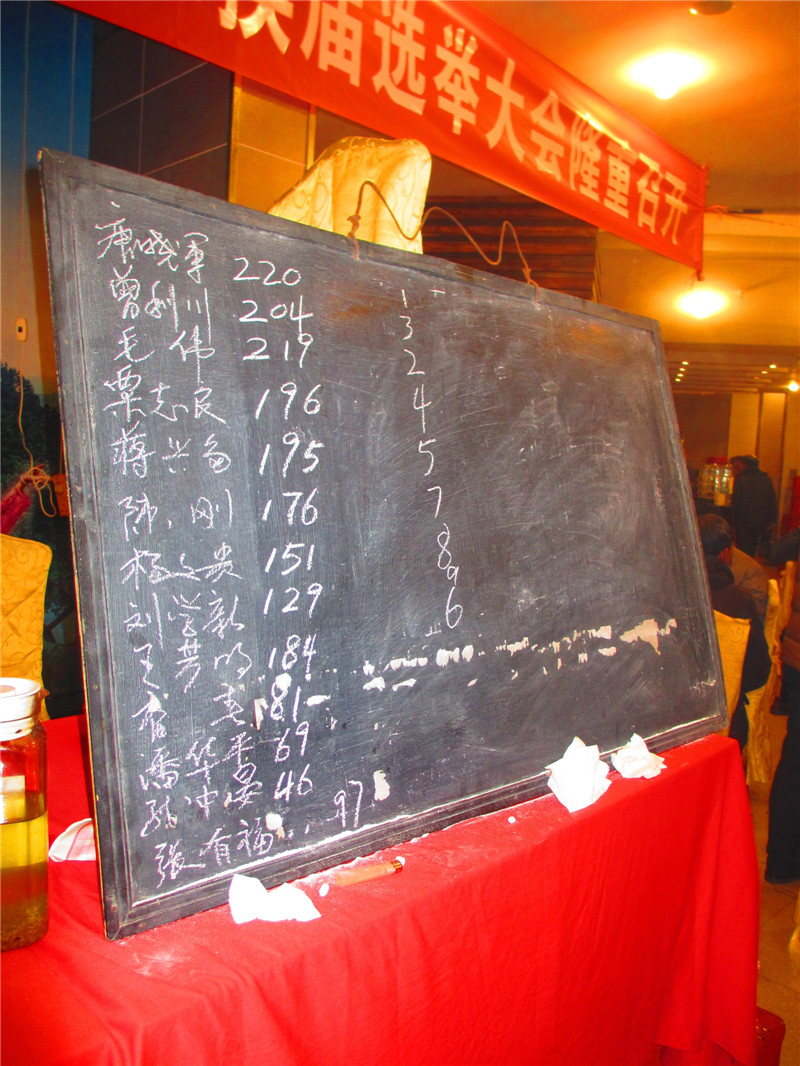 换届选举大会隆重召开
晓軍 220 1
曾利川 204 3
毛伟 219 2
栗志良 196 4
蒋兴 195 5
陈刚 176 7
杨文贵 151 8
刘学新 129 9
明 184 6
81
潘华平 69
冲 46
張有福 97